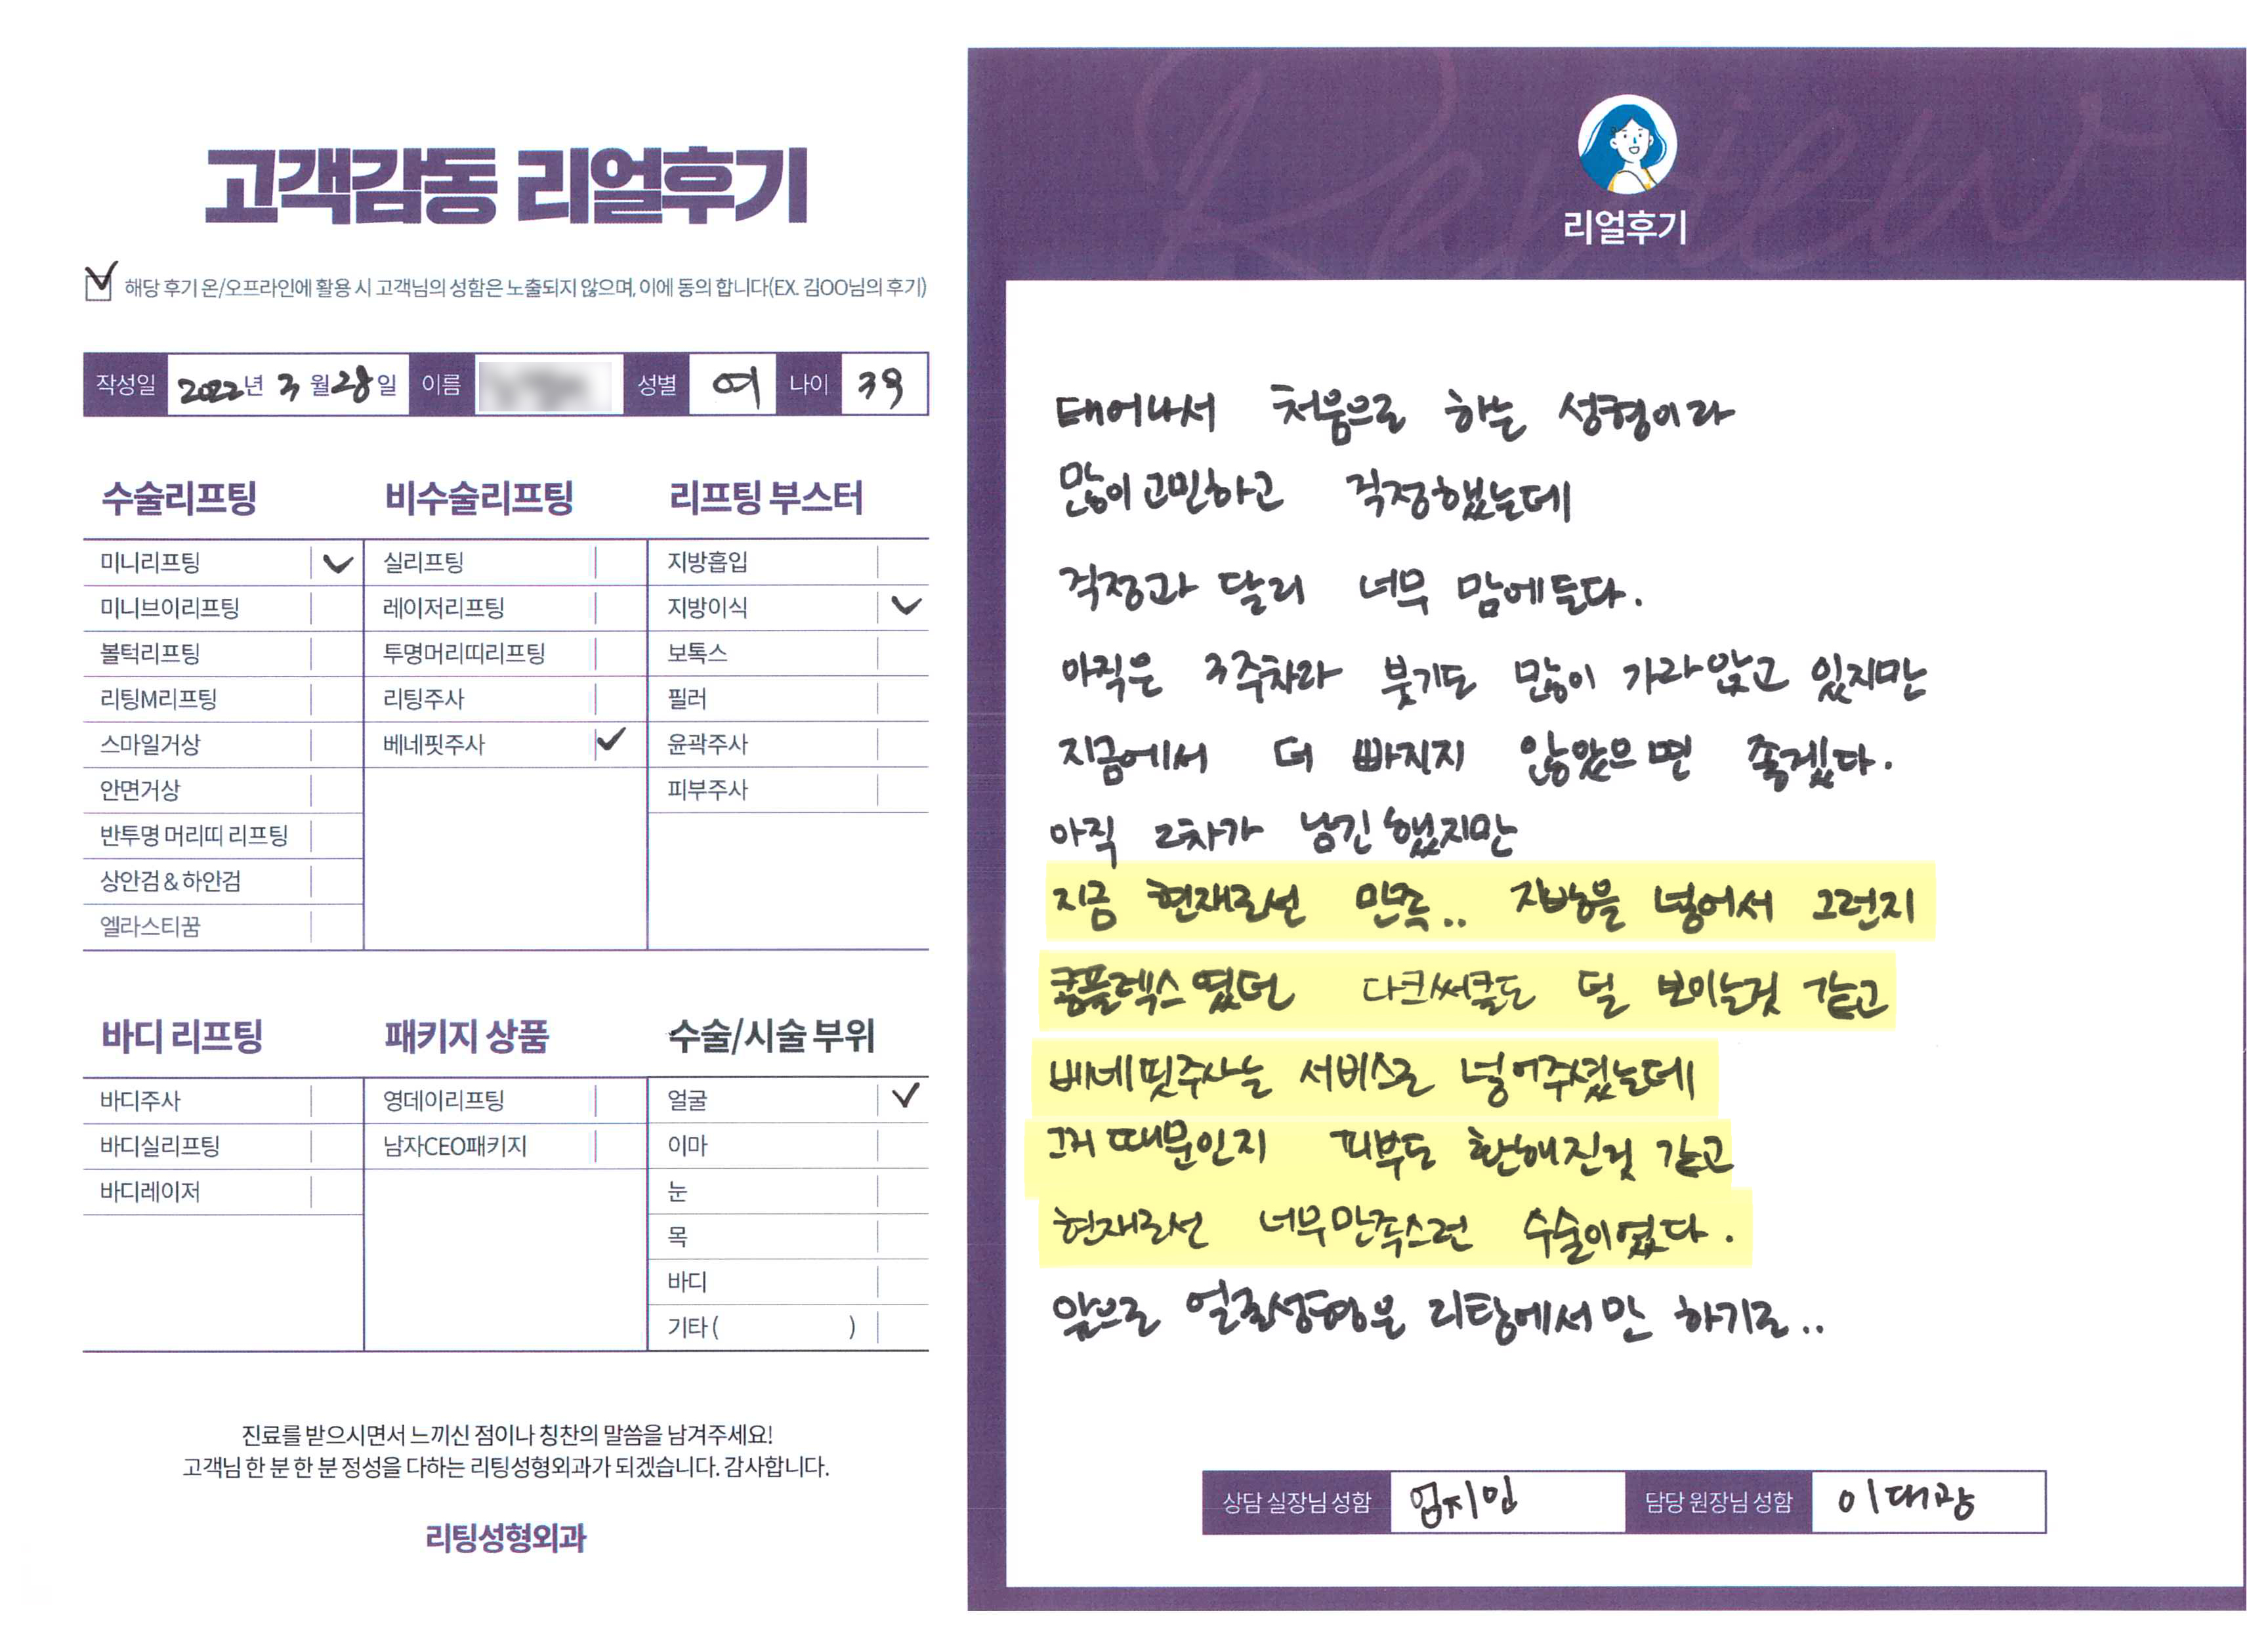 고객감동 리얼후기
해당 후기 온/오프라인에 활용 시 고객님의 성함은 노출되지 않으며, 이에 동의 합니다(EX. 김OO님의 후기)
작성일 2022년 3월 28일 이름 성별 여 나이 39
수술리프팅
미니리프팅
미니브이리프팅
볼턱리프팅
리팅M리프팅
스마일거상
안면거상
반투명 머리띠 리프팅
상안검 & 하안검
엘라스티꿈
비수술리프팅
실리프팅
레이저리프팅
투명머리띠리프팅
리팅주사
베네핏주사
리프팅 부스터
지방흡입
지방이식
보톡스
필러
윤곽주사
피부주사
바디 리프팅
바디주사
바디실리프팅
바디레이저
패키지 상품
영데이리프팅
남자CEO패키지
수술/시술 부위
얼굴
이마
눈
목
바디
기타 ( )
진료를 받으시면서 느끼신 점이나 칭찬의 말씀을 남겨주세요!
고객님 한 분 한 분 정성을 다하는 리팅성형외과가 되겠습니다. 감사합니다.
리팅성형외과
Review
리얼후기
태어나서 처음으로 하는 성형이라
많이 고민하고 걱정했는데
걱정과 달리 너무 맘에든다.
아직은 3주차라 붓기도 많이 가라앉고 있지만
지금에서 더 빠지지 않았으면 좋겠다.
아직 2차가 남긴했지만
지금 현재로선 만족.. 지방을 넣어서 그런지
콤플렉스였던 다크써클도 덜 보이는것 같고
베네핏주사는 서비스로 넣어주셨는데
그거 때문인지 피부도 환해진것 같고
현재로선 너무만족스런 수술이였다.
앞으로 얼굴성형은 리팅에서만 하기로..
상담 실장님 성함 엄지인 담당 원장님 성함 이대광